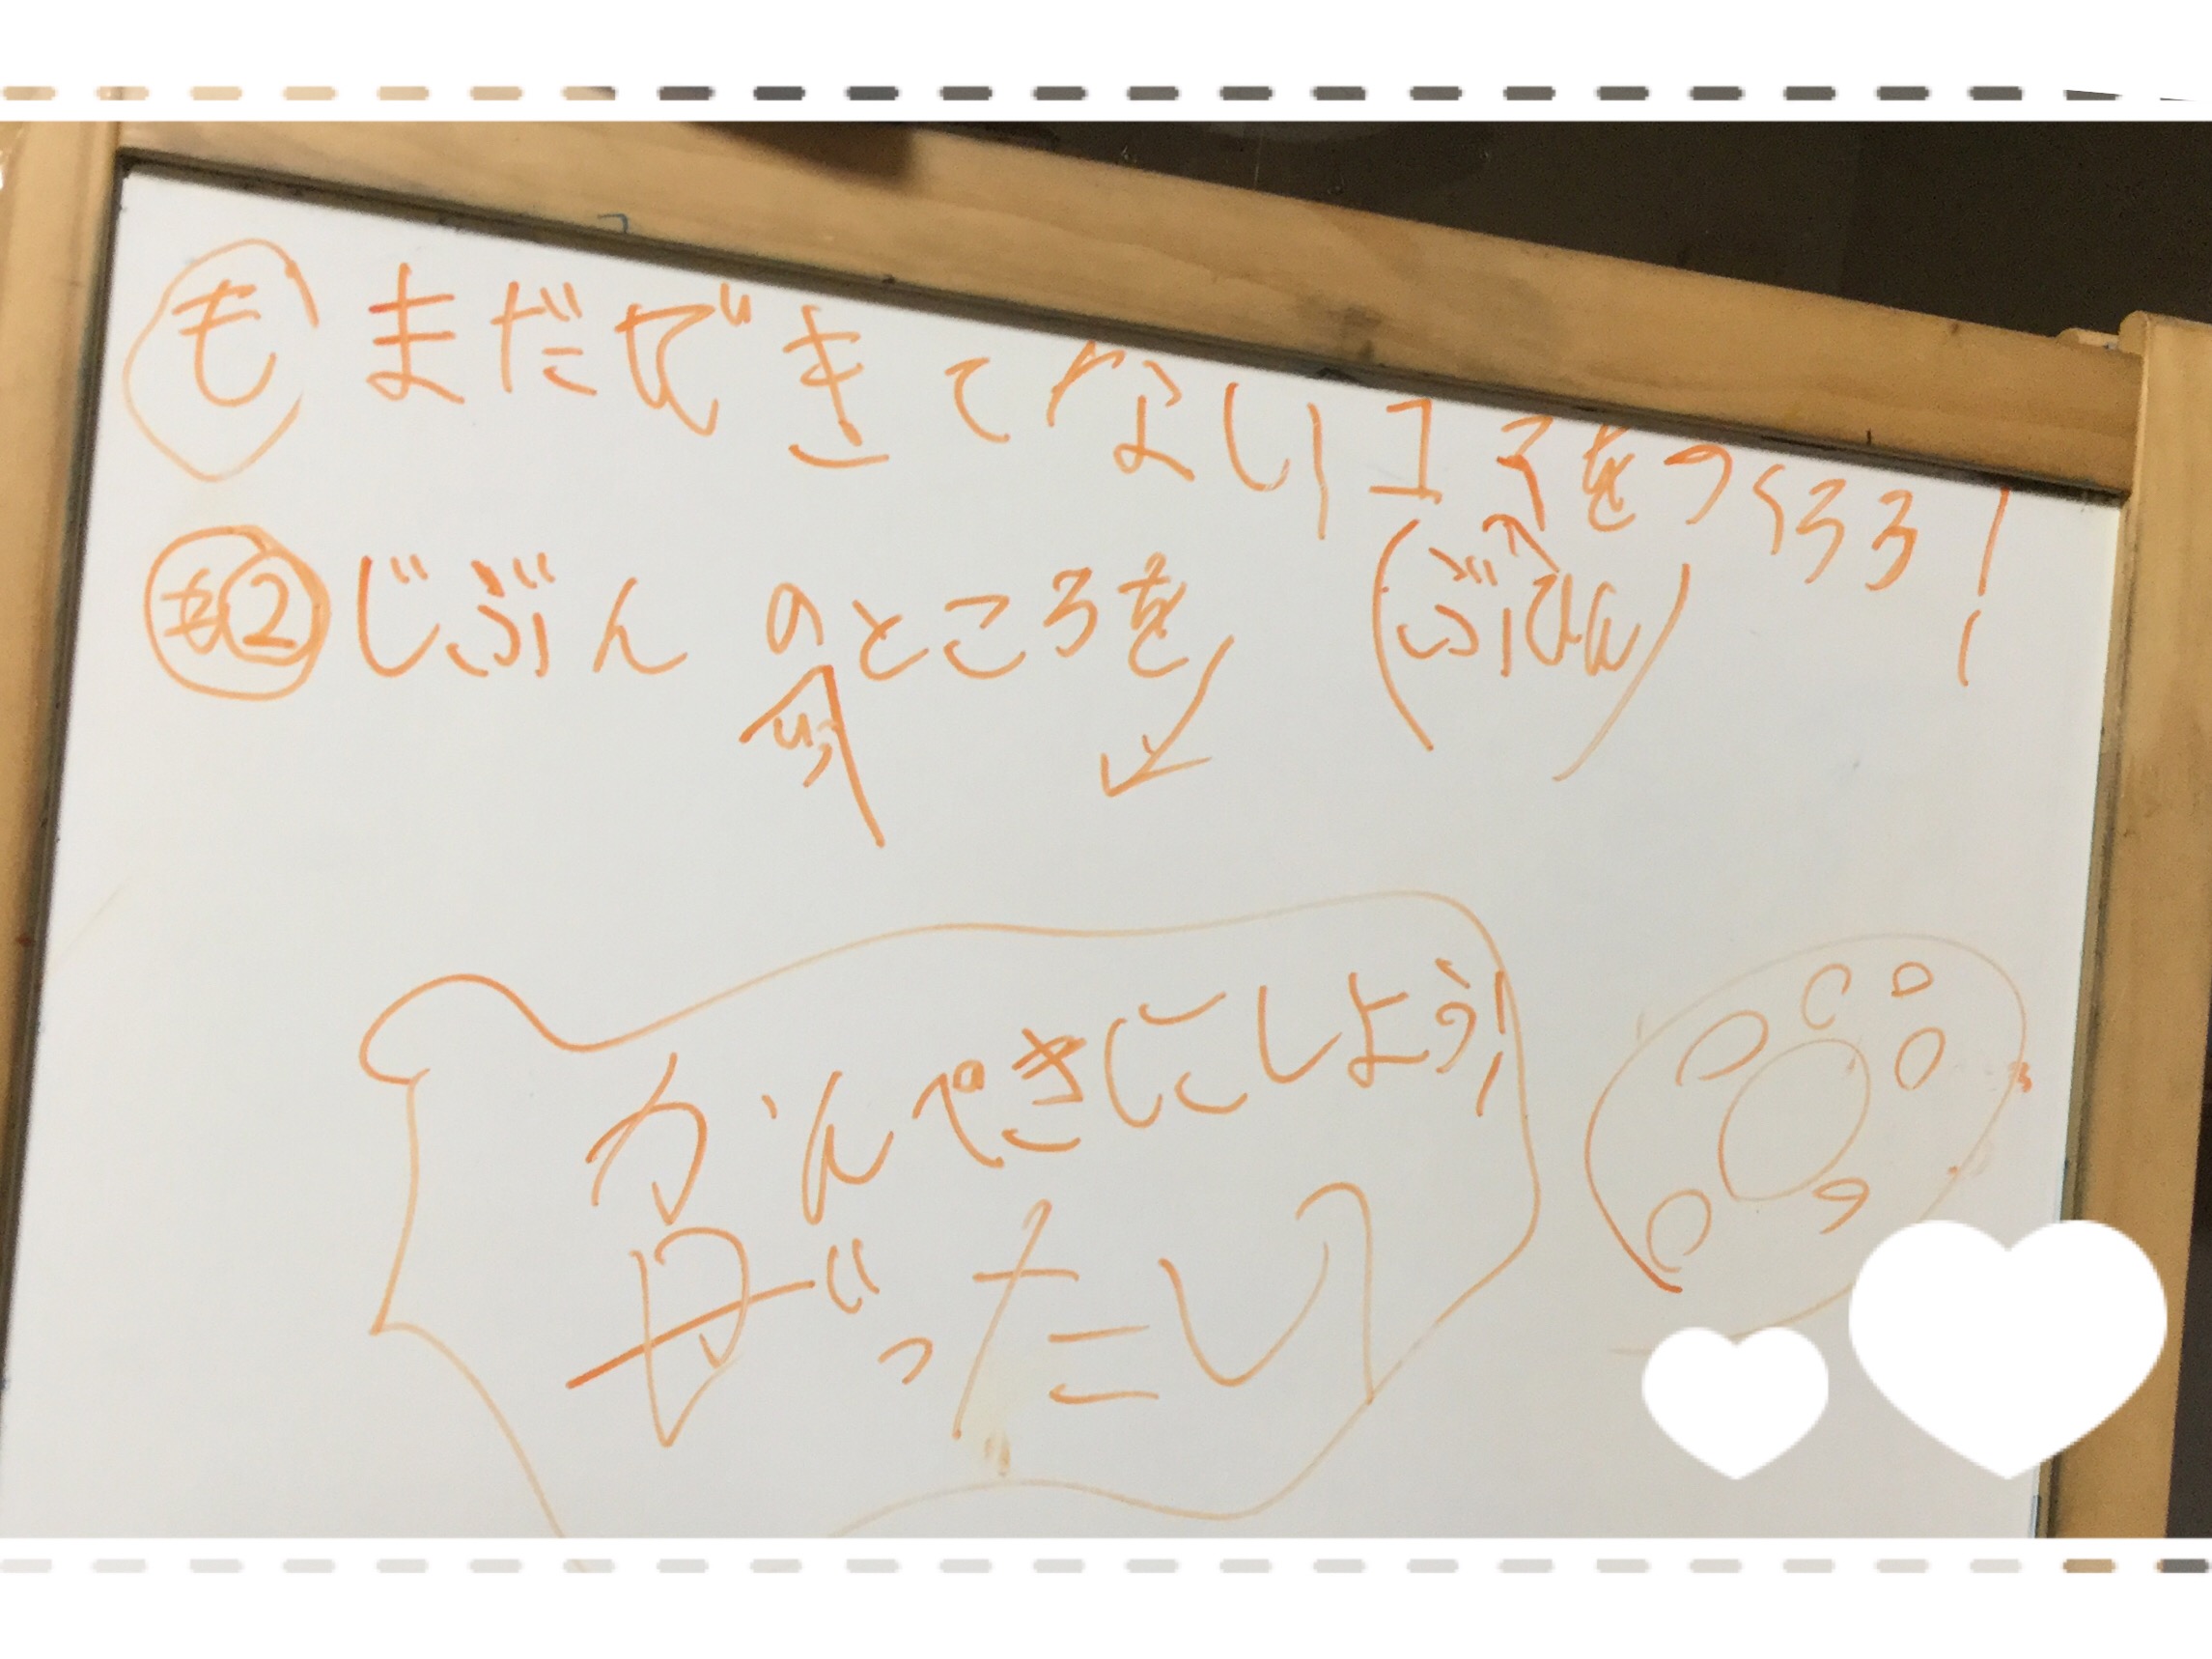 も まだできてないコマをつくろう!
も② じぶんのところを
(ぶひん)
かんぺきにしよう!
ぜったい